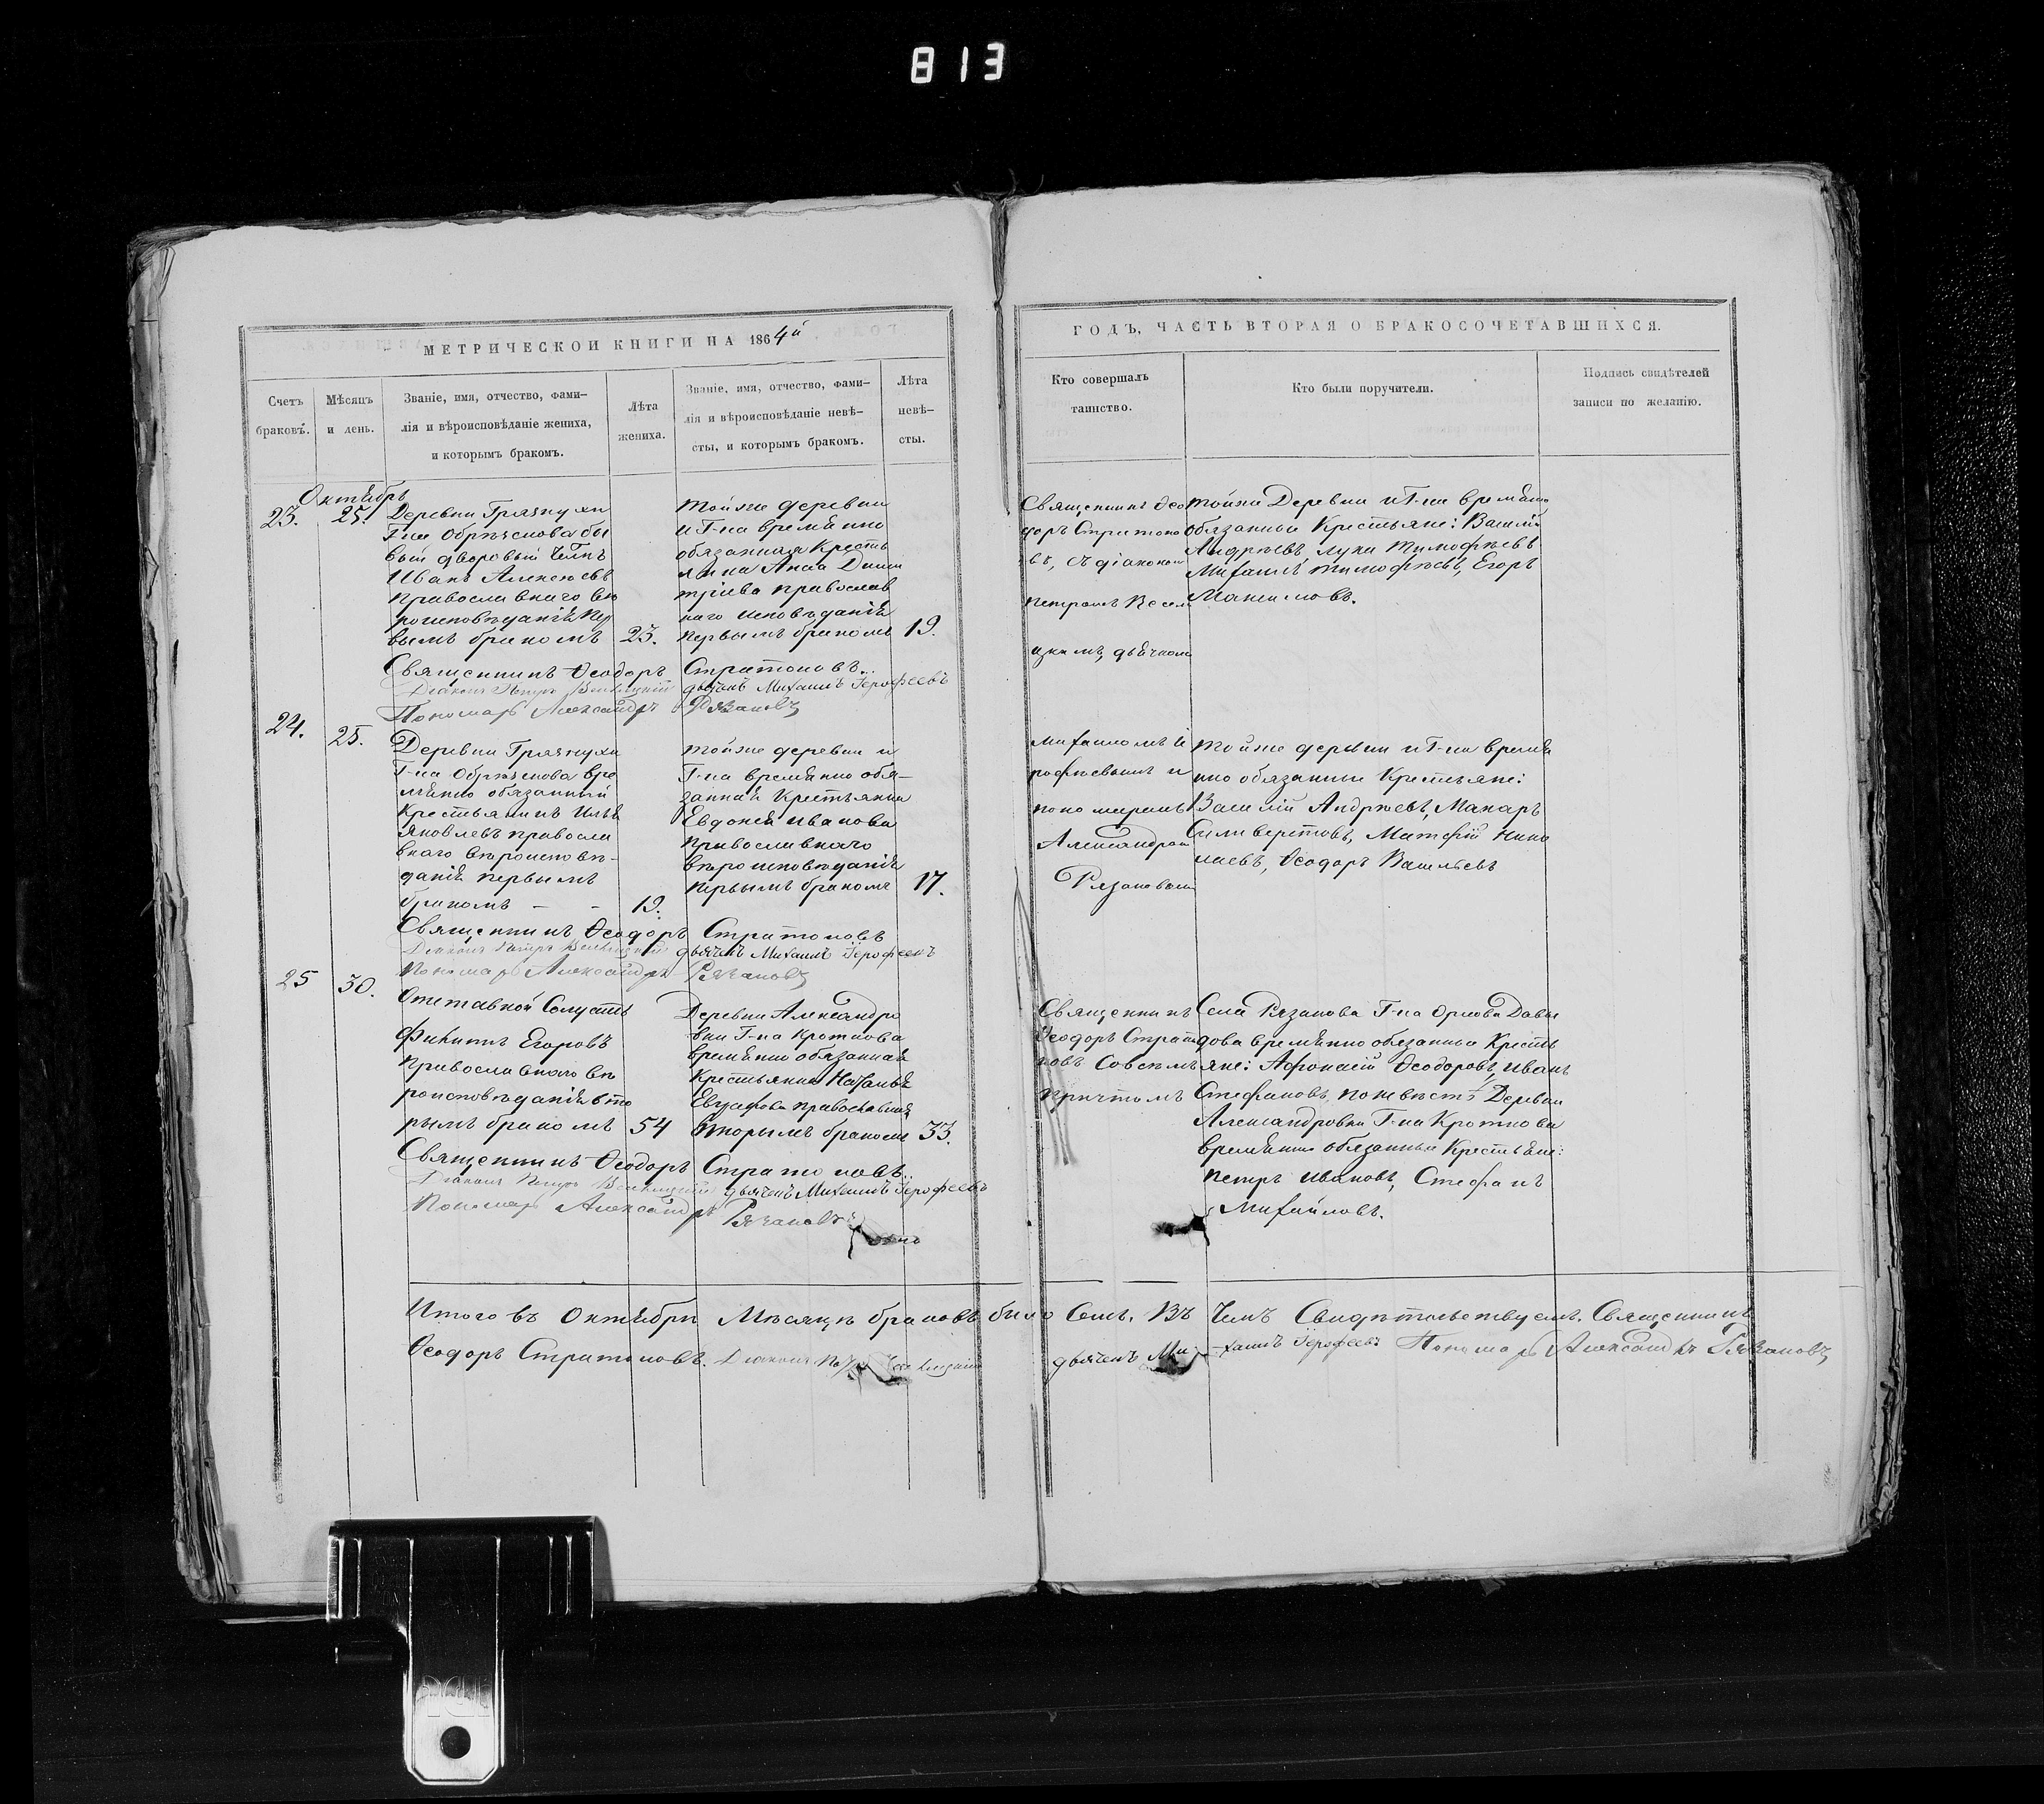 813
МЕТРИЧЕСКОЙ КНИГИ НА 1864й
ГОДЪ, ЧАСТЬ ВТОРАЯ О БРАКОСОЧЕТАВШИХСЯ.
Счетъ
браковъ.
Мѣсяцъ
и день.
Званіе, имя, отчество, фами-
лія и вѣроисповѣданіе жениха,
и которымъ бракомъ.
Лѣта
жениха.
Званіе, имя, отчество, фами-
лія и вѣроисповѣданіе невѣ-
сты, и которымъ бракомъ.
Лѣта
невѣ-
сты.
Кто совершалъ
таинство.
Кто были поручители.
Подпись свидѣтелей
записи по желанію.
Октябрь
23.
25.
Деревни Грязнухи
Г-на Обрѣскова бы
вый дворовый
Иванъ Алексѣевъ
православнаго вѣ
роисповѣданія пер
вымъ бракомъ
23.
тойже деревни
и Г-на временно
обязанная Кресть
янка Анна Дими
тріева православ
наго исповѣданія
первымъ бракомъ
19.
Священникъ Ѳео
доръ Стратоно
въ, съ діакономъ
Петромъ
дьячкомъ
тойже Деревни и Г-на временно
обязанные Крестьяне: Василій
Андрѣевъ, Лука Тимофѣевъ
Михаилъ Тимофѣевъ, Егоръ
Максимовъ.
Священникъ Ѳеодоръ Стратоновъ.
Діаконъ Петръ дьячекъ Михаилъ Іерофеевъ
Пономарь Александръ Рязановъ
24.
25.
Деревни Грязнухи
Г-на Обрѣскова вре
менно обязанный
Крестьянинъ Илья
Яковлевъ правосла
внаго вѣроисповѣ-
данія первымъ
бракомъ - -
19.
тойже деревни и
Г-на временно обя-
занная Крестьянка
Евдокия Иванова
православнаго
вѣроисповѣданія
первымъ бракомъ
17.
Михаиломъ Іе
рофѣевымъ и
пономаремъ
Александромъ
Рязановымъ
тойже деревни и Г-на времен
но обязанные Крестьяне:
Василій Андрѣевъ, Макаръ
Силиверстовъ, Матфій Нико
лаевъ, Ѳеодоръ Васильевъ
Священникъ Ѳеодоръ Стратоновъ
Діаконъ Петръ дьячекъ Михаилъ Іерофеевъ
Пономарь Александръ Рязановъ
25
30.
Отставной Солдатъ
Филиппъ Егоровъ
Православнаго вѣ
роисповѣданія вто
рымъ бракомъ
54
Деревни Александро
вки Г-на Кроткова
временно обязанная
Крестьянка Наталья
православная
вторымъ бракомъ
33.
Священникъ
Ѳеодоръ Страто
новъ Совсемъ
причтомъ
Села Рязанова Г-на Орлова Давы
дова временно обязанные Кресть
яне: Афонасій Ѳеодоровъ, Иванъ
Стефановъ, по невѣстѣ Деревни
Александровки Г-на Кроткова
временно обязанные Крестьяне:
Петръ Ивановъ, Стефанъ
Михайловъ.
Священникъ Ѳеодоръ Стратоновъ.
Діаконъ Петръ дьячекъ Михаилъ Іерофеевъ
Пономарь Александръ Рязановъ
Итого въ Октябрѣ Мѣсяцѣ браковъ было Семь. Въ Чемъ Свидѣтельствуемъ. Священникъ
Ѳеодоръ Стратоновъ. Діаконъ Петръ дьячекъ Михаилъ Іерофеевъ Пономарь Александръ Рязановъ